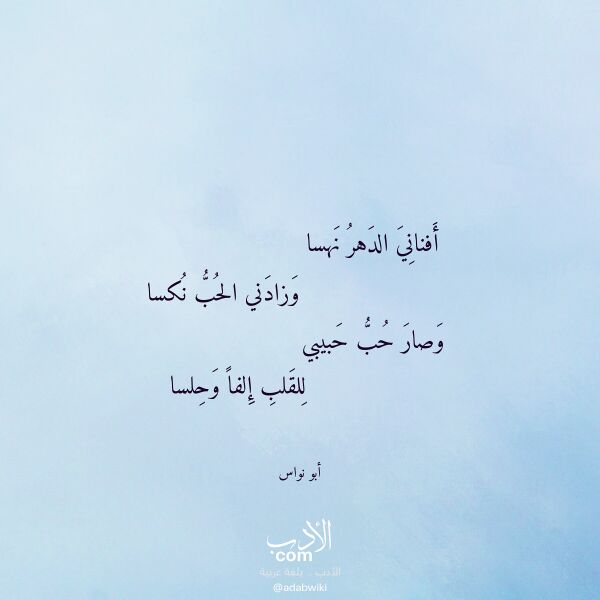 أَفنانِيَ الدَهرُ نَهسا
وَزادَني الحُبُّ نُكسا
وَصارَ حُبُّ حَبيبي
لِلقَلبِ إِلفاً وَحِلسا
أبو نواس
الأدب
com
الأدب .. بلغة عربية
@adabwiki